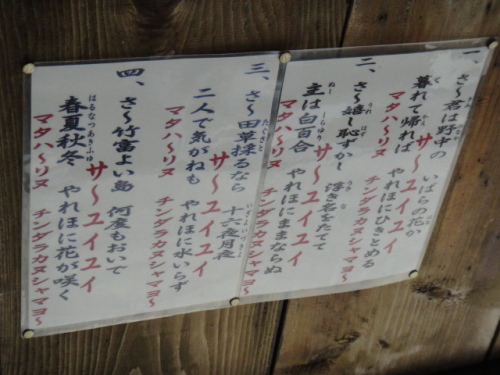 一、さ〜君は野中の いばらの花か
サ〜ユイユイ
暮れて帰れば やれほにひきとめる
マタハ〜リヌ チンダラカヌシャマヨ〜
二、さ〜嬉し恥ずかし 浮き名をたてて
サ〜ユイユイ
主は白百合 やれほにままならぬ
マタハ〜リヌ チンダラカヌシャマヨ〜
三、さ〜田草採るなら 十六夜月夜
サ〜ユイユイ
二人で気がねも やれほに水いらず
マタハ〜リヌ チンダラカヌシャマヨ〜
四、さ〜竹富よい島 何度もおいで
サ〜ユイユイ
春夏秋冬 やれほに花が咲く
マタハ〜リヌ チンダラカヌシャマヨ〜